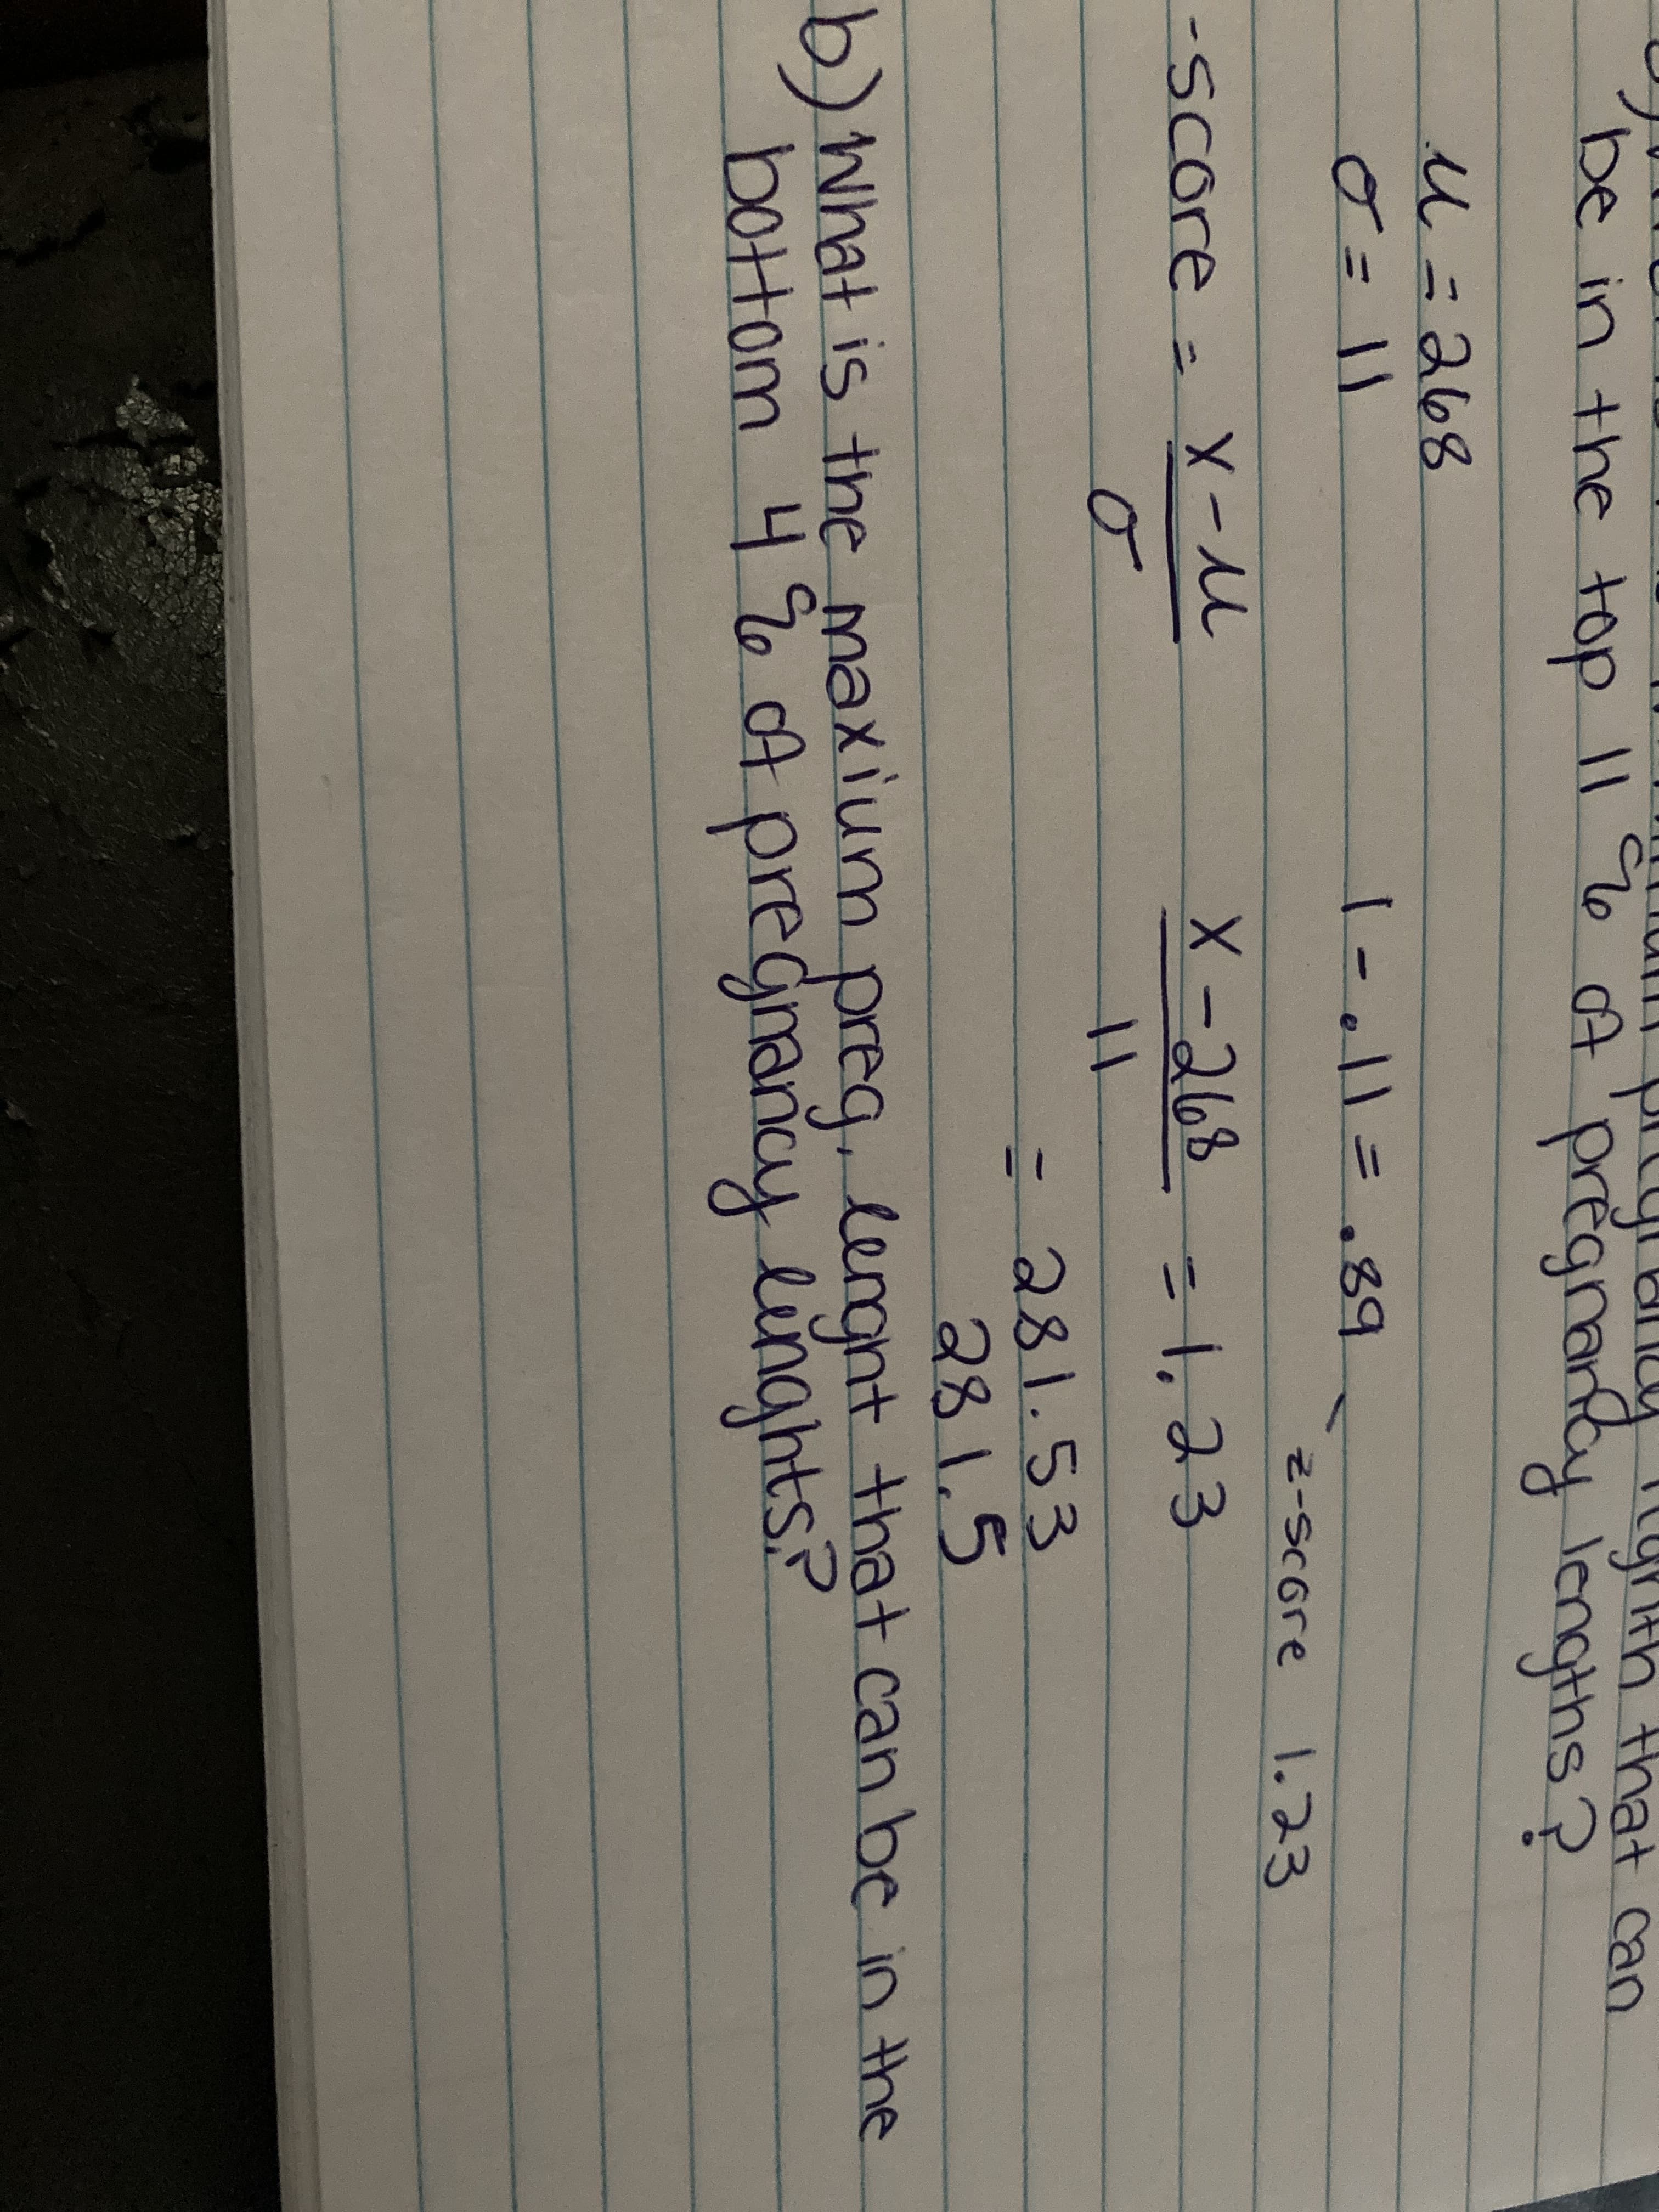 be in the top 11 % of pregnancy lengths?
μ = 268
σ = 11
1 - .11 = .89
z-score 1.23
-score = x - μ / σ
x - 268 / 11 = 1.23
= 281.53
281.5
b) What is the maxium preg. lenght that can be in the
bottom 4 % of pregnancy lenghts?